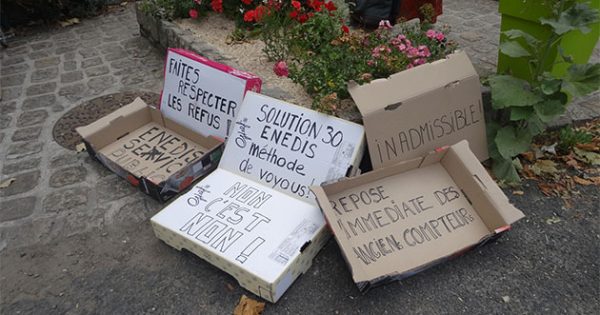 FAITES
RESPECTER
LES REFUS
ENEDIS
SOLUTION 30
ENEDIS
méthode
de voyous!
NON
C'EST
NON!
INADMISSIBLE!
REPOSE
IMMEDIATE DES
ANCIENS COMPTEURS